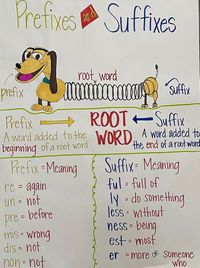 Prefixes and Suffixes
root word
prefix
Suffix
Prefix
A word added to the
beginning of a root word
ROOT
WORD
Suffix
A word added to
the end of a root word
Prefix = Meaning
re = again
un = not
pre = before
mis = wrong
dis = not
non = not
Suffix = Meaning
ful = full of
ly = do something
less = without
ness = being
est = most
er = more or someone
who